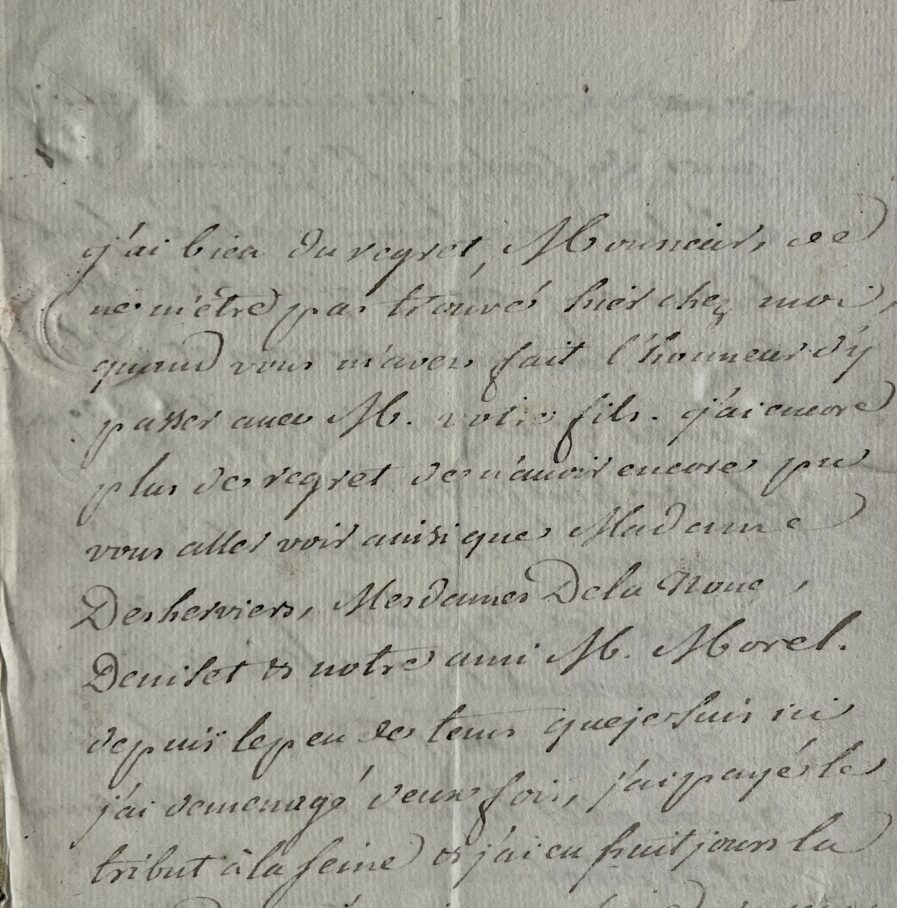 j'ai bien du regret, Monsieur, de
ne m'être pas trouvé hier chez moi,
quand vous m'avez fait l'honneur d'y
passer avec M. votre fils. j'ai encore
plus de regret de n'avoir encore pu
vous aller voir ainsi que Madame
Desherviers, Mesdames De la Noue,
Denilet & notre ami M. Morel.
depuis le peu de tems que je suis ici
j'ai demenagé deux fois, j'ai payé le
tribut à la seine & j'ai eu huit jours la